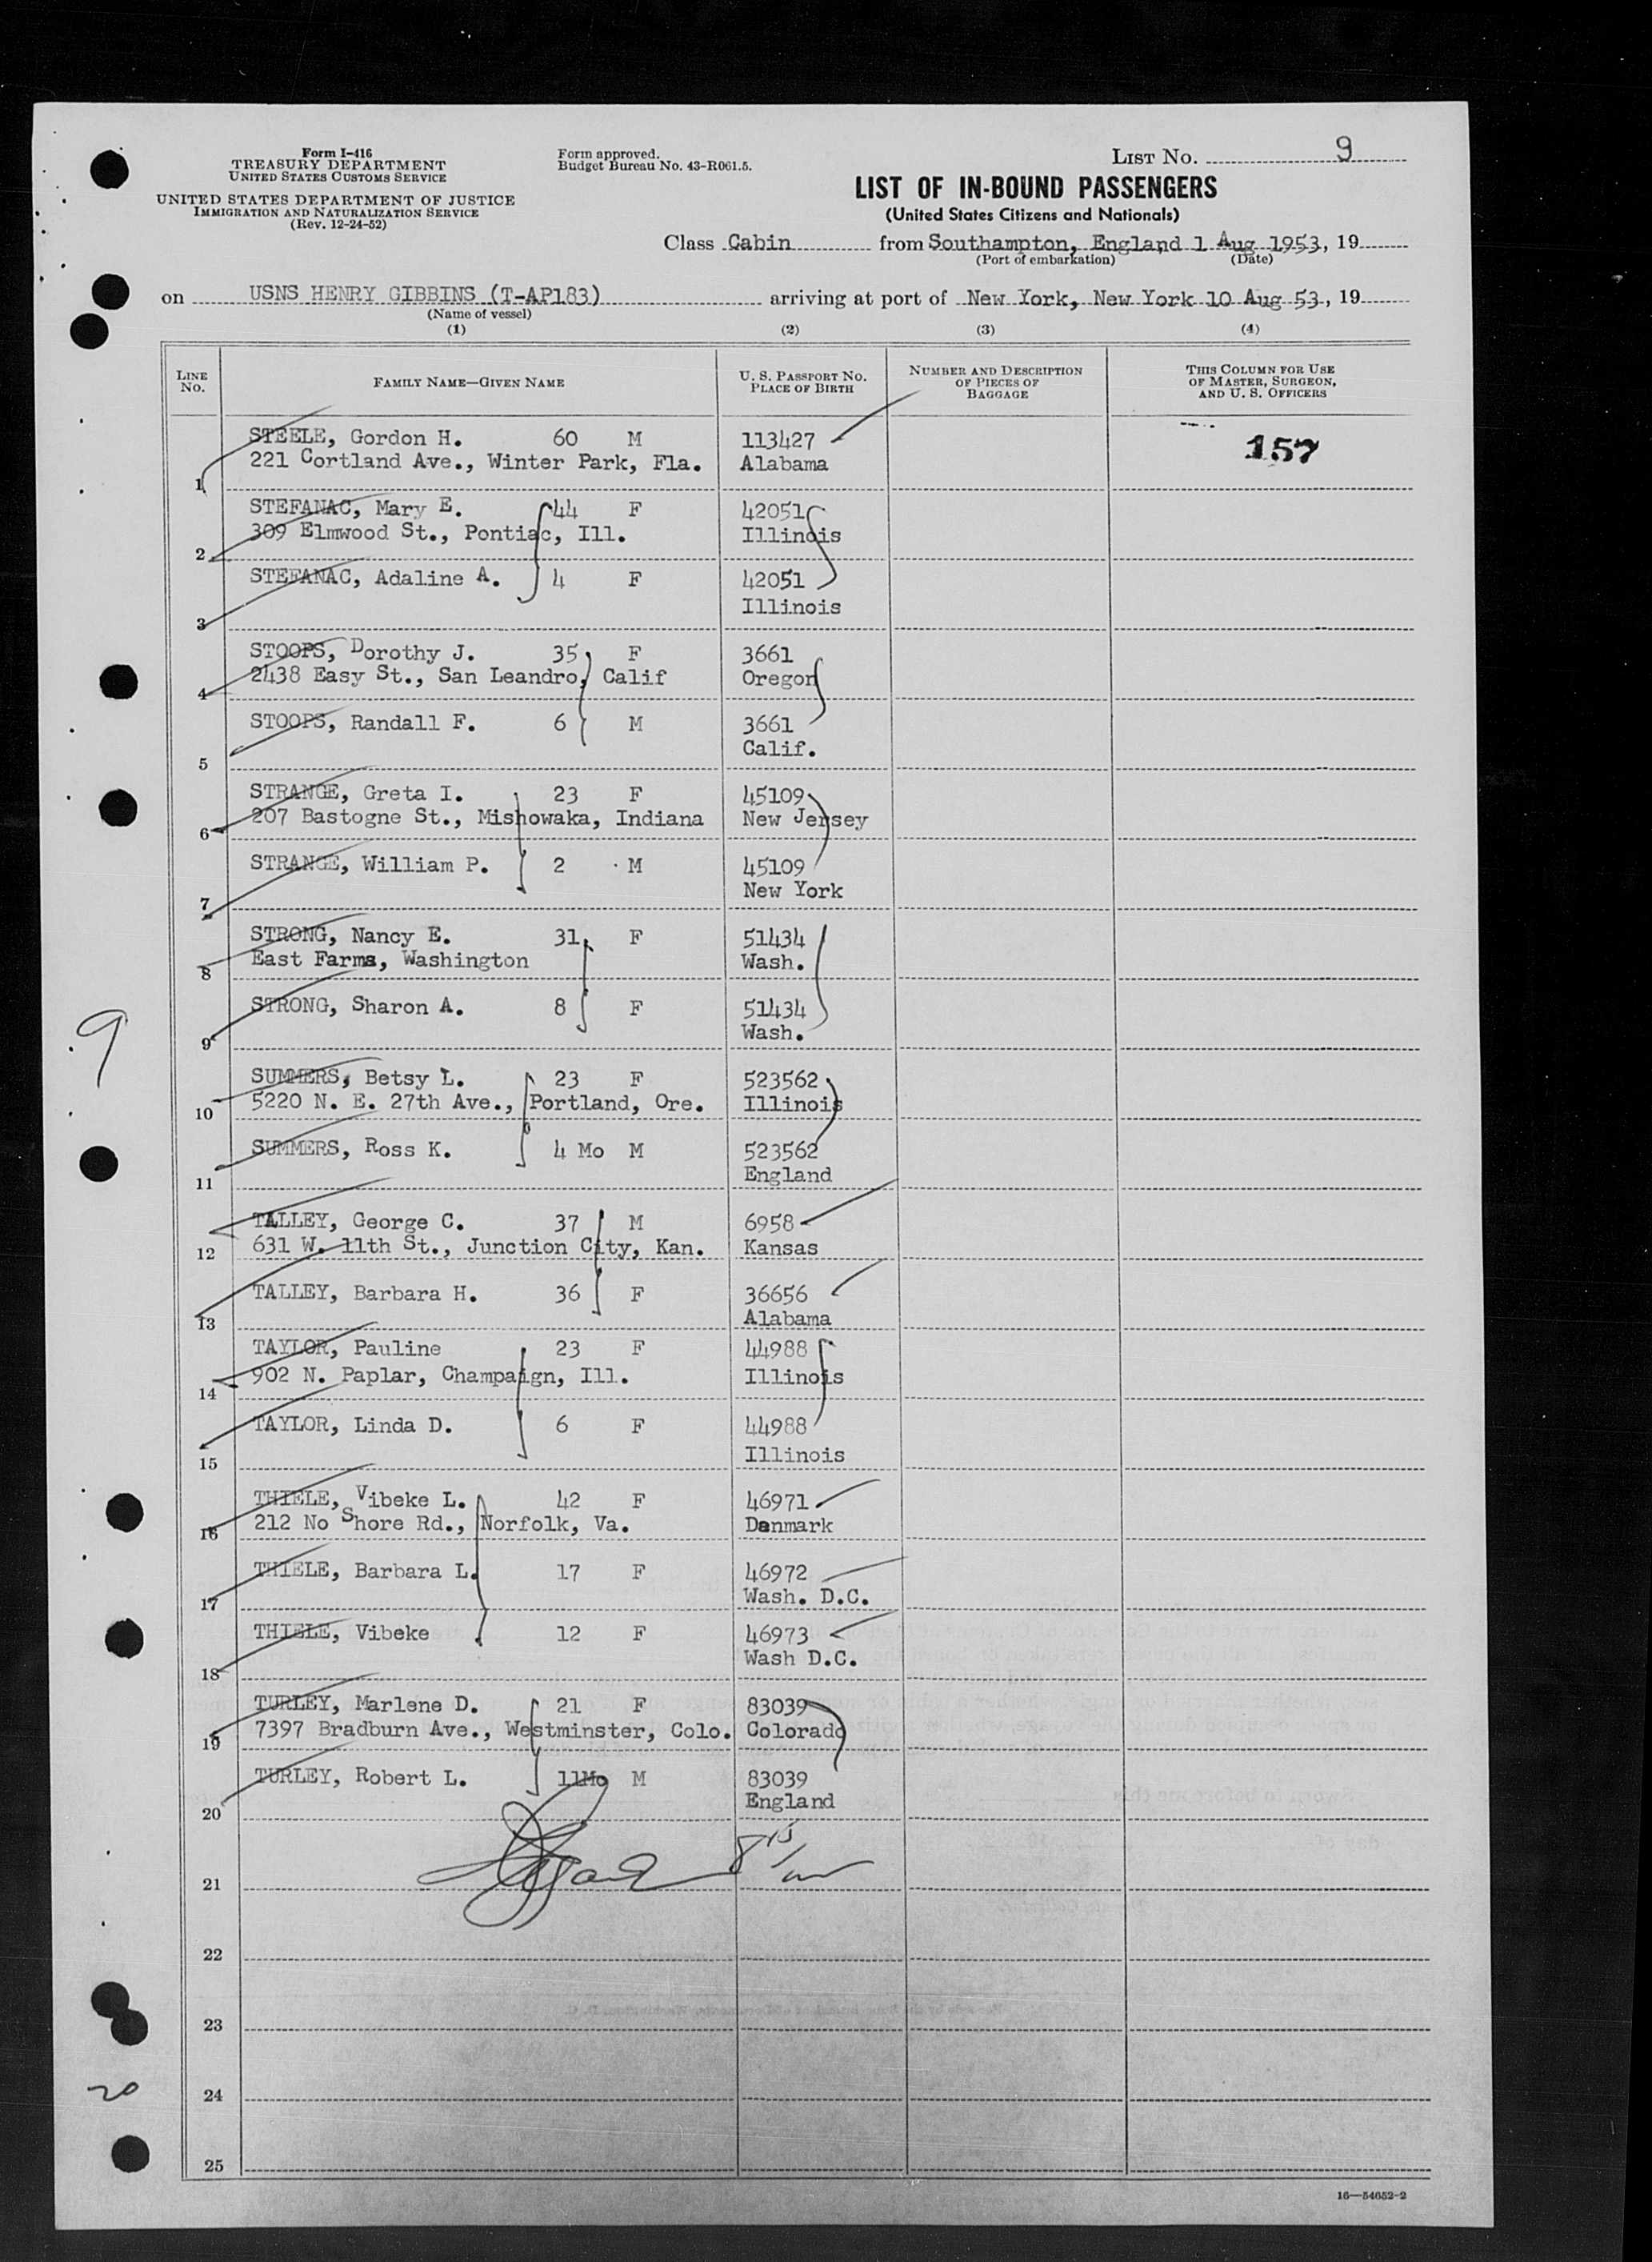 Form I-416
TREASURY DEPARTMENT
UNITED STATES CUSTOMS SERVICE
UNITED STATES DEPARTMENT OF JUSTICE
IMMIGRATION AND NATURALIZATION SERVICE
(Rev. 12-24-52)
Form approved.
Budget Bureau No. 43-R061.5.
LIST NO. 9
LIST OF IN-BOUND PASSENGERS
(United States Citizens and Nationals)
Class Cabin from Southampton, England 1 Aug 1953, 19
(Port of embarkation) (Date)
on USNS HENRY GIBBINS (T-AP183) arriving at port of New York, New York 10 Aug 53, 19
(Name of vessel)
(1) (2) (3) (4)
LINE NO. FAMILY NAME—GIVEN NAME U. S. PASSPORT NO. PLACE OF BIRTH NUMBER AND DESCRIPTION OF PIECES OF BAGGAGE THIS COLUMN FOR USE OF MASTER, SURGEON, AND U. S. OFFICERS
STEELE, Gordon H. 60 M 113427 157
221 Cortland Ave., Winter Park, Fla. Alabama
1
STEFANAC, Mary E. 44 F 42051
309 Elmwood St., Pontiac, Ill. Illinois
2
STEFANAC, Adaline A. 4 F 42051
Illinois
3
STOOPS, Dorothy J. 35 F 3661
2438 Easy St., San Leandro, Calif Oregon
4
STOOPS, Randall F. 6 M 3661
Calif.
5
STRANGE, Greta I. 23 F 45109
207 Bastogne St., Mishowaka, Indiana New Jersey
6
STRANGE, William P. 2 M 45109
New York
7
STRONG, Nancy E. 31 F 51434
East Farms, Washington Wash.
8
STRONG, Sharon A. 8 F 51434
Wash.
9
9
SUMMERS, Betsy L. 23 F 523562
5220 N. E. 27th Ave., Portland, Ore. Illinois
10
SUMMERS, Ross K. 4 Mo M 523562
England
11
TALLEY, George C. 37 M 6958
631 W. 11th St., Junction City, Kan. Kansas
12
TALLEY, Barbara H. 36 F 36656
Alabama
13
TAYLOR, Pauline 23 F 44988
902 N. Paplar, Champaign, Ill. Illinois
14
TAYLOR, Linda D. 6 F 44988
Illinois
15
THIELE, Vibeke L. 42 F 46971
212 No Shore Rd., Norfolk, Va. Denmark
16
THIELE, Barbara L. 17 F 46972
Wash. D.C.
17
THIELE, Vibeke 12 F 46973
Wash D.C.
18
TURLEY, Marlene D. 21 F 83039
7397 Bradburn Ave., Westminster, Colo. Colorado
19
TURLEY, Robert L. 11Mo M 83039
England
20
21
22
23
24
20
25
16—54652-2